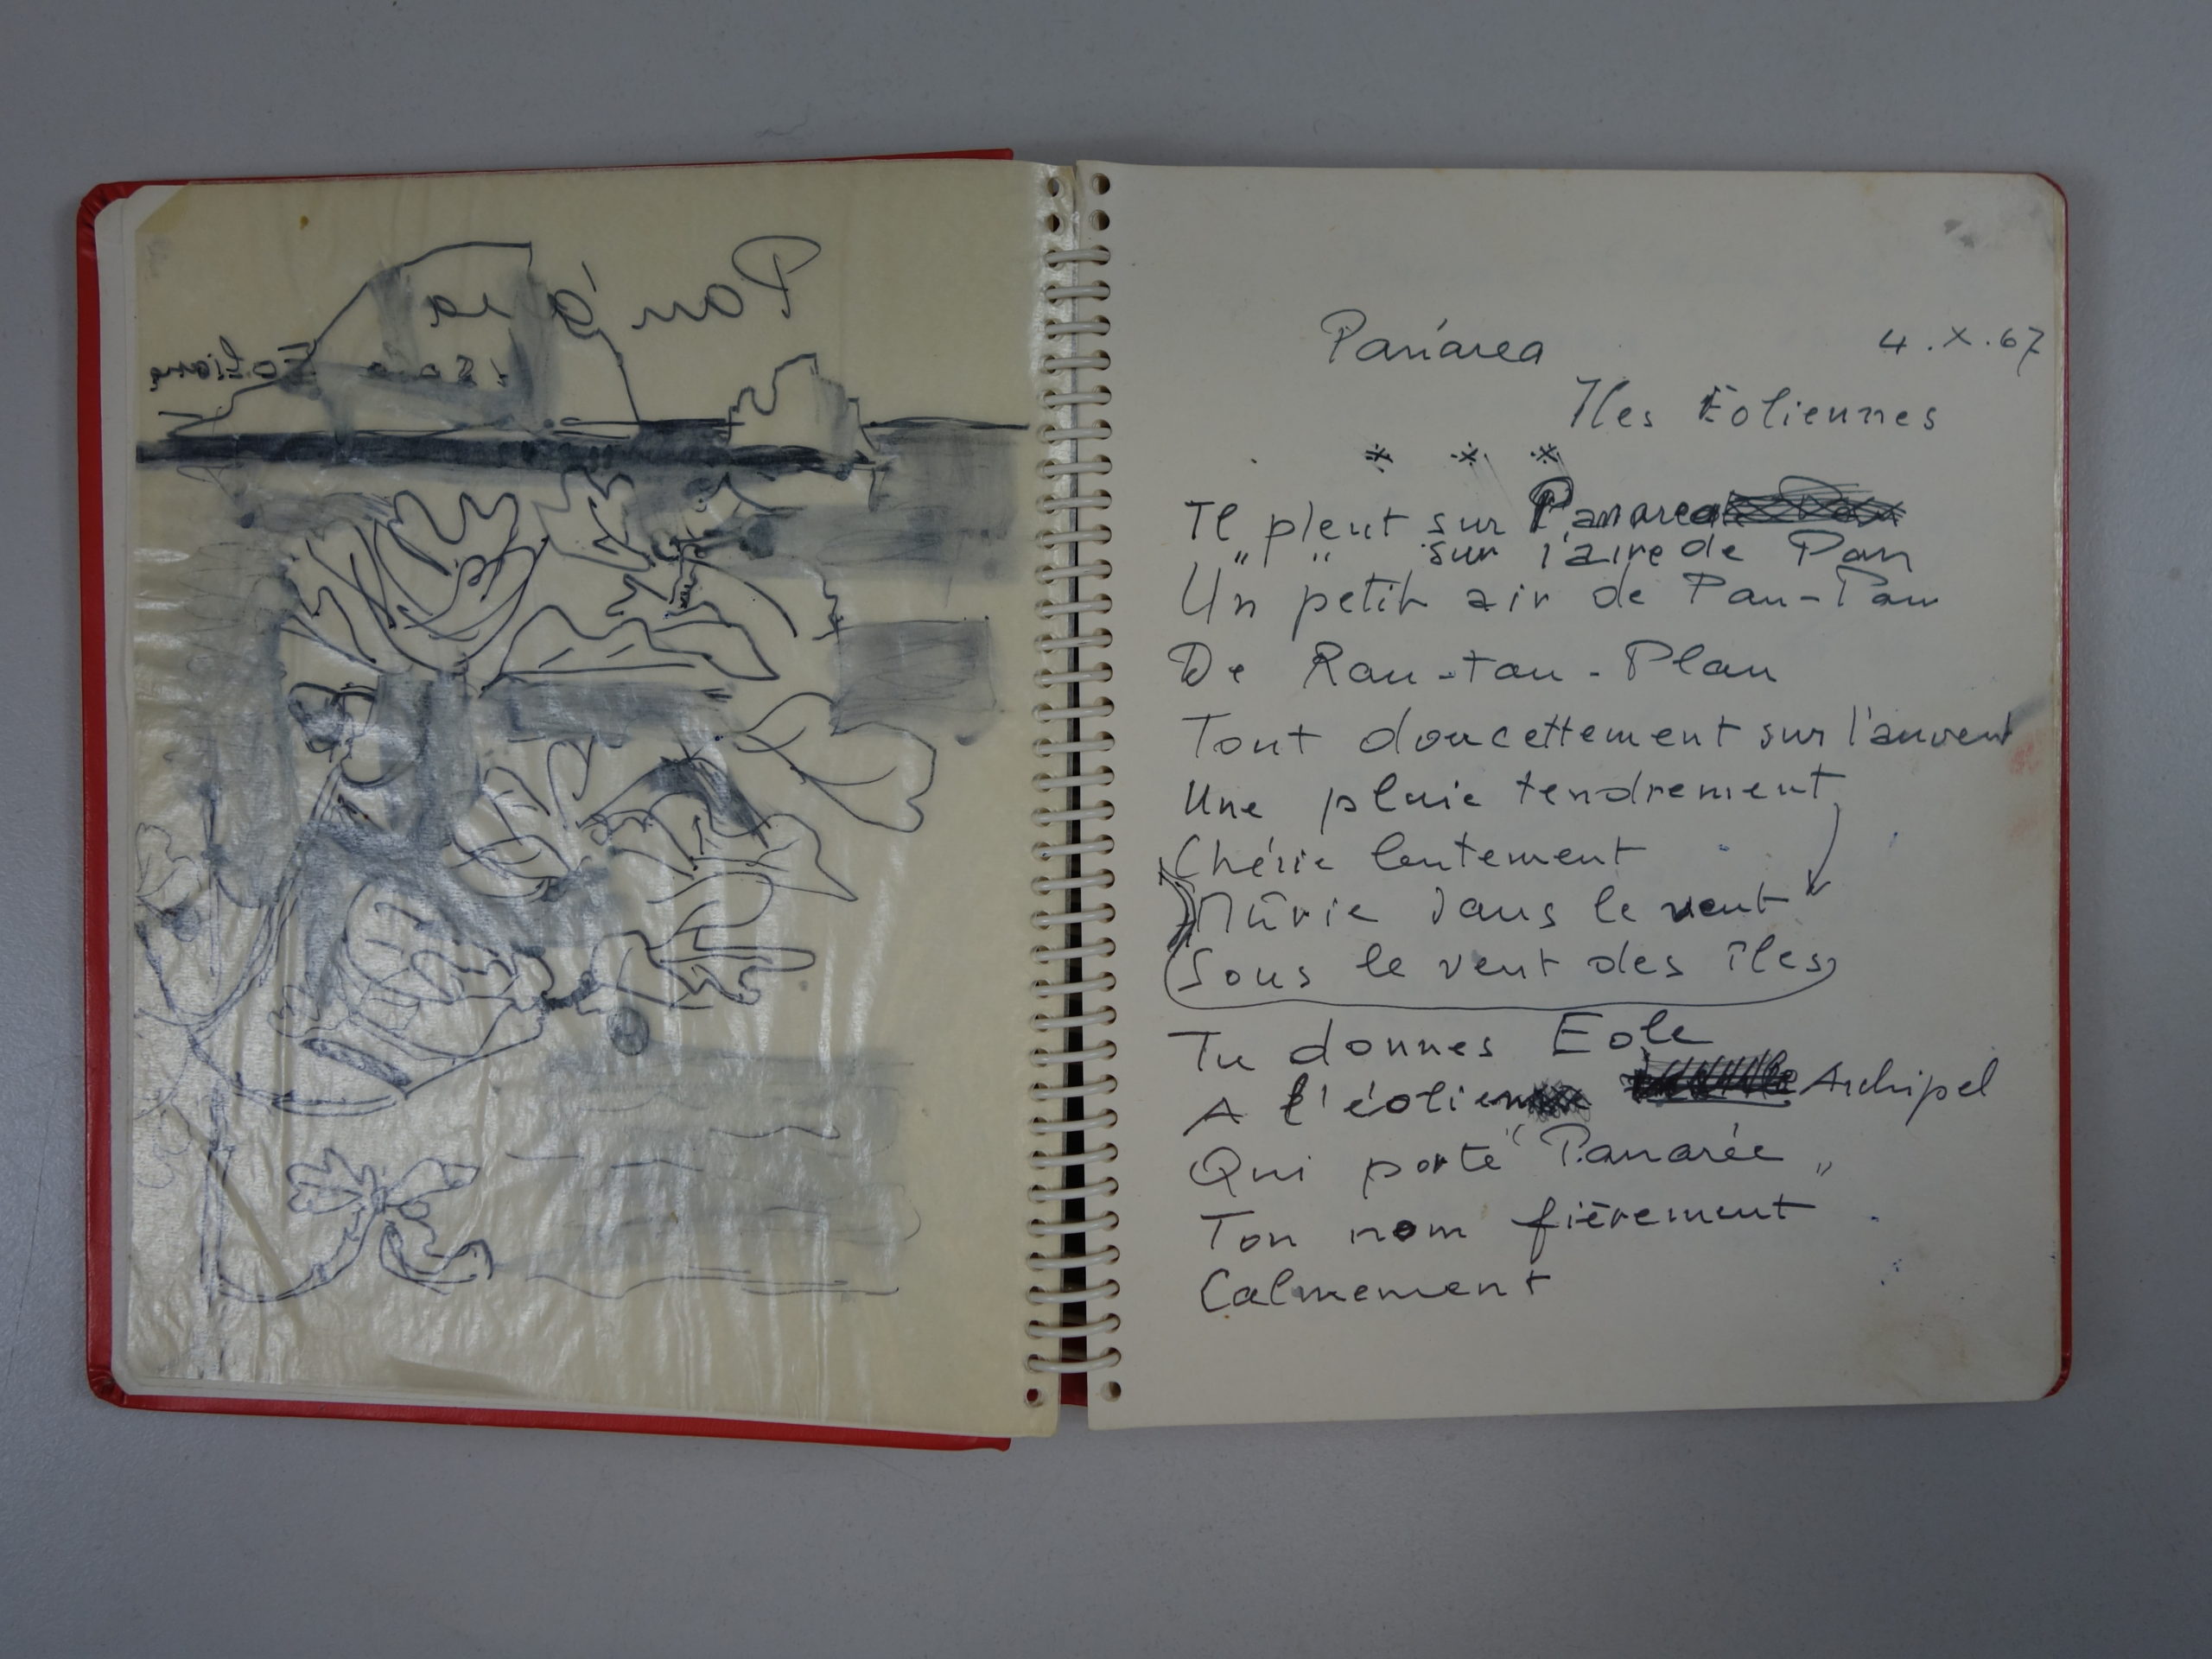 Panárea
Isole Eoliane
Panárea 4.X.67
Iles Eoliennes
* * *
Il pleut sur Panarea
" " sur l'aire de Pan
Un petit air de Pan-Pan
De Ran-tan-Plan
Tout doucettement sur l'auvent
Une pluie tendrement
Chérie lentement
Mûrie dans le vent
(Sous le vent des îles)
Tu donnes Eole
A l'éolien Archipel
Qui porte "Panarée"
Ton nom fièrement
Calmement